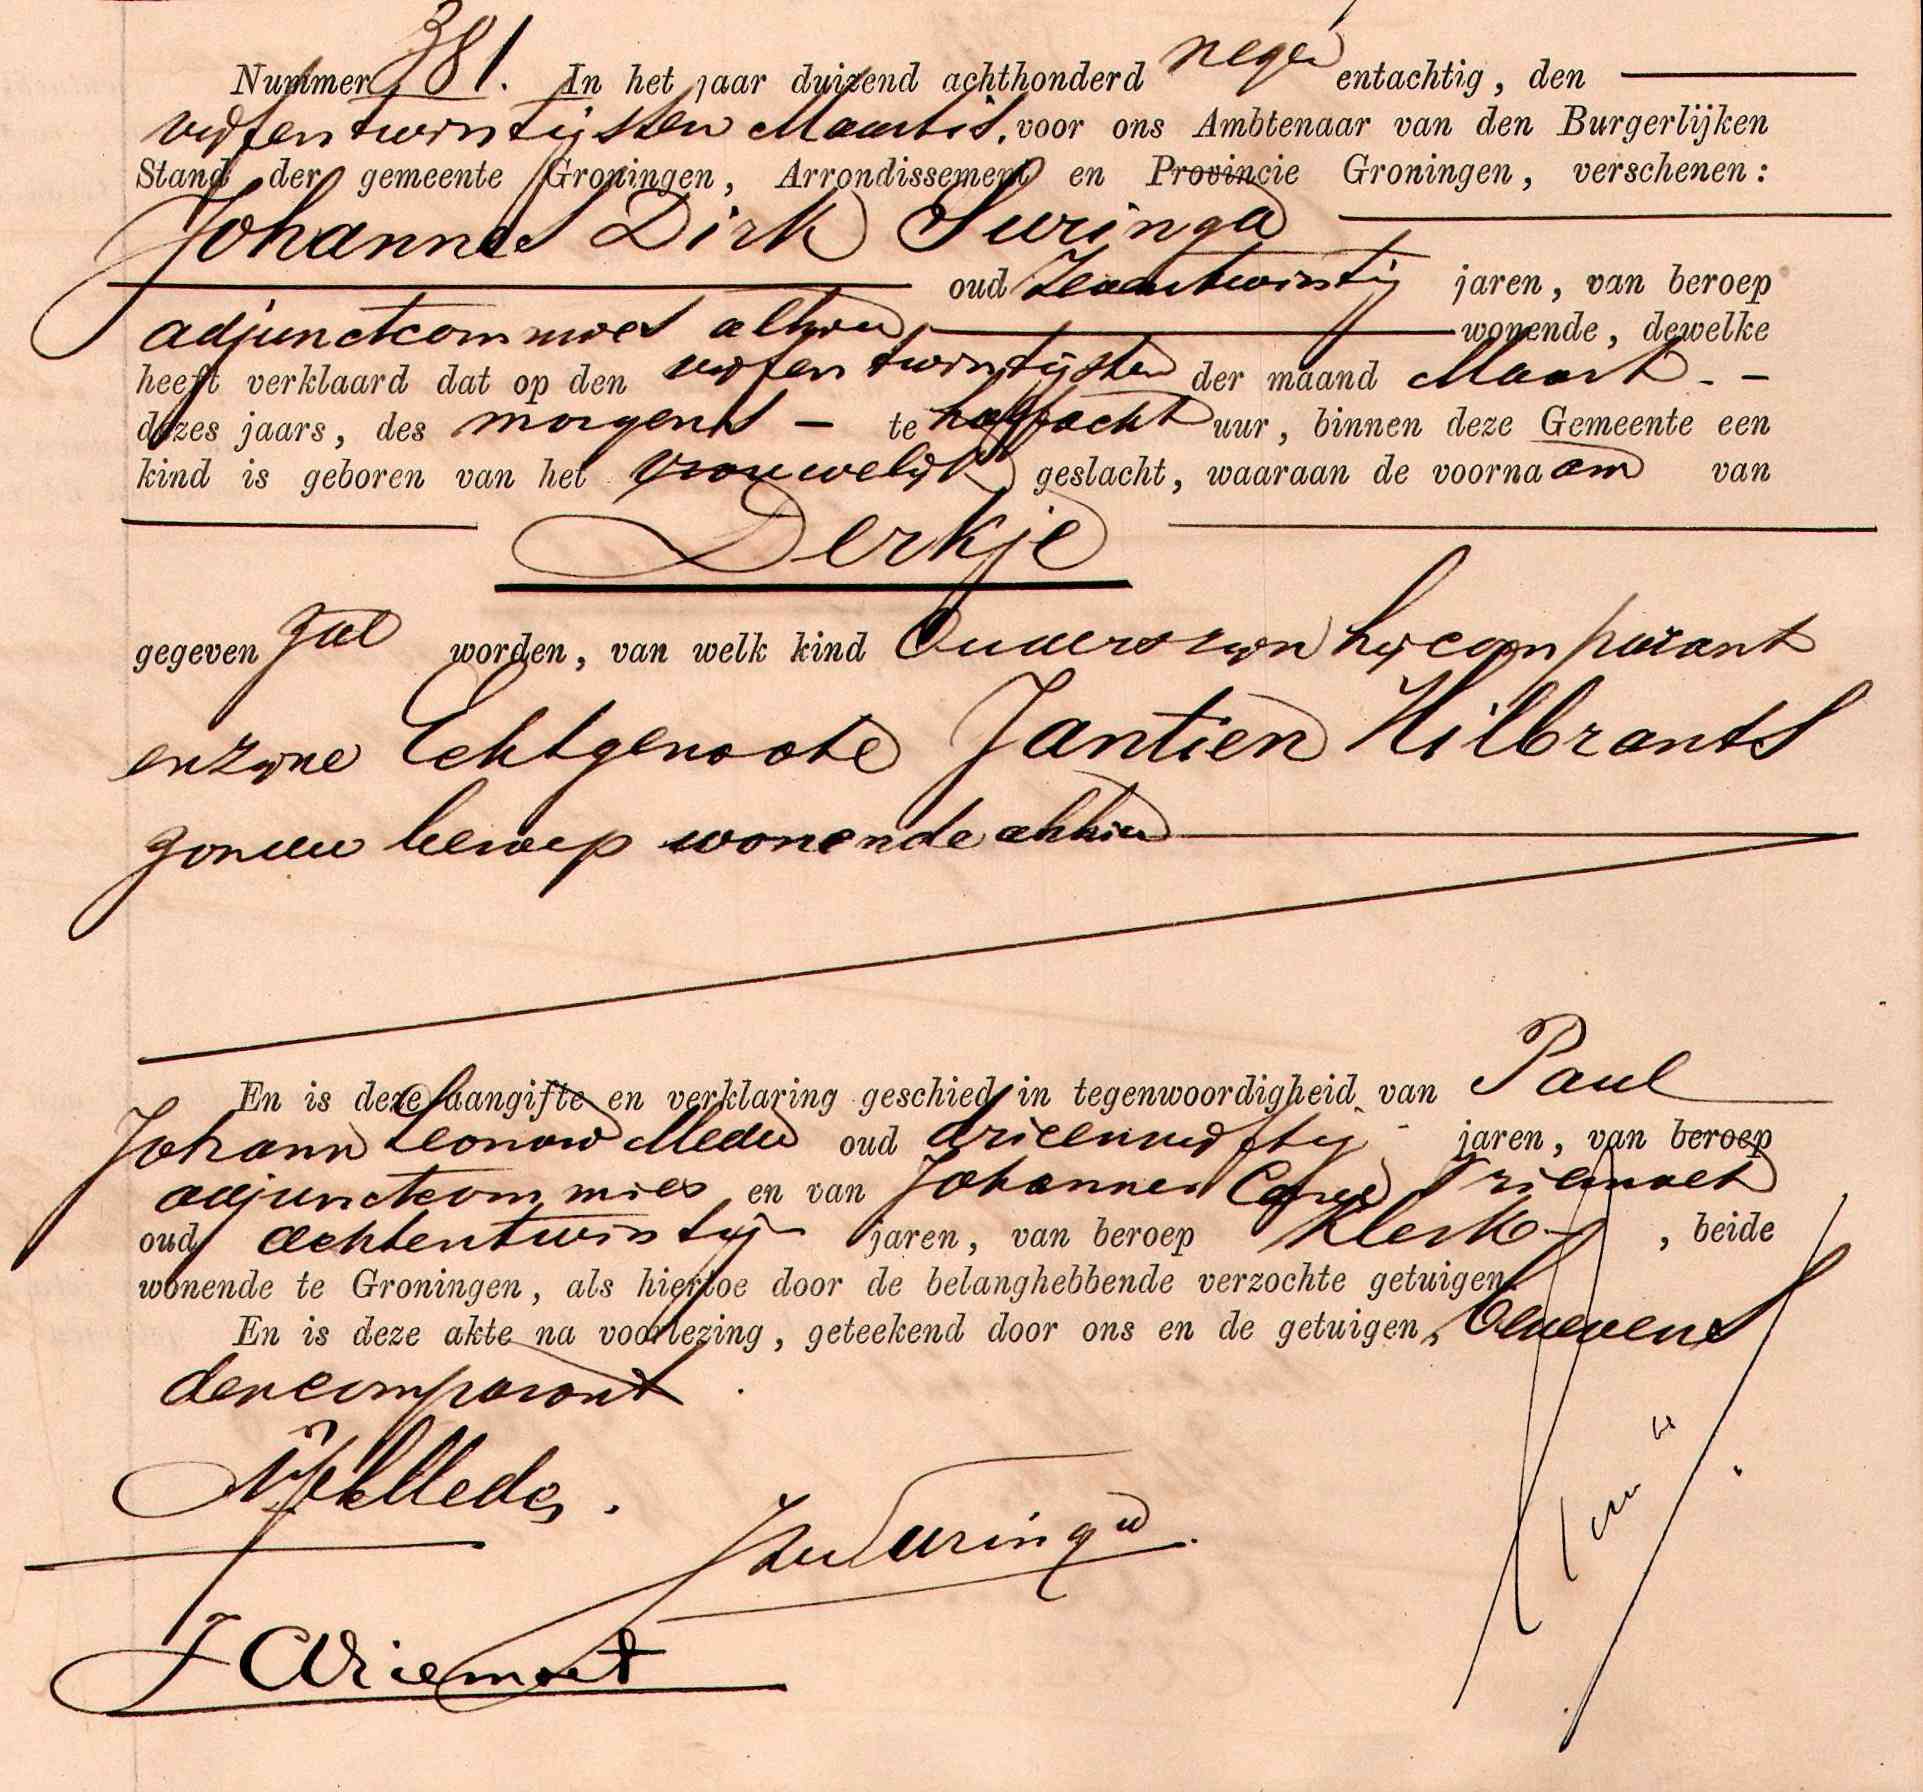 Nummer 381. In het jaar duizend achthonderd negen entachtig, den
vijfentwintigsten Maart is, voor ons Ambtenaar van den Burgerlijken
Stand der gemeente Groningen, Arrondissement en Provincie Groningen, verschenen:
Johannes Dirk Suringa
oud zesentwintig jaren, van beroep
adjunctcommies alhier wonende, dewelke
heeft verklaard dat op den vijfentwintigsten der maand Maart - -
dezes jaars, des morgens - te halfacht uur, binnen deze Gemeente een
kind is geboren van het vrouwelijk geslacht, waaraan de voornaam van
Derkje
gegeven zal worden, van welk kind Ouders zijn hij comparant
en zijne Echtgenoote Jantien Hilbrants
zonder beroep wonende alhier
En is deze aangifte en verklaring geschied in tegenwoordigheid van Paul
Johann Leonard Meder oud drieenvijftig jaren, van beroep
adjunctcommies en van Johannes Carel Vriemoet
oud achtentwintig jaren, van beroep Klerk, beide
wonende te Groningen, als hiertoe door de belanghebbende verzochte getuigen.
En is deze akte na voorlezing, geteekend door ons en de getuigen, benevens
den comparant.
Meder.
Suringa.
J C Vriemoet